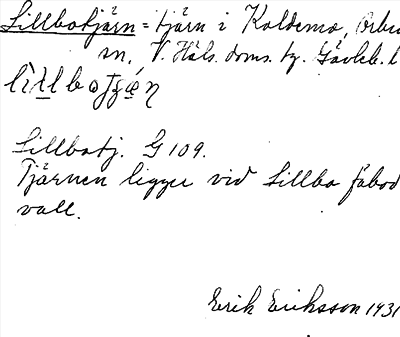 Lillbotjärn = tjärn i Koldemo, Arbrå
m. V. Häls. doms. tg. Gävleb. l
Lillbotj. G 109.
Tjärnen ligger vid Lillbo fäbod
vall.
Erik Eriksson 1931